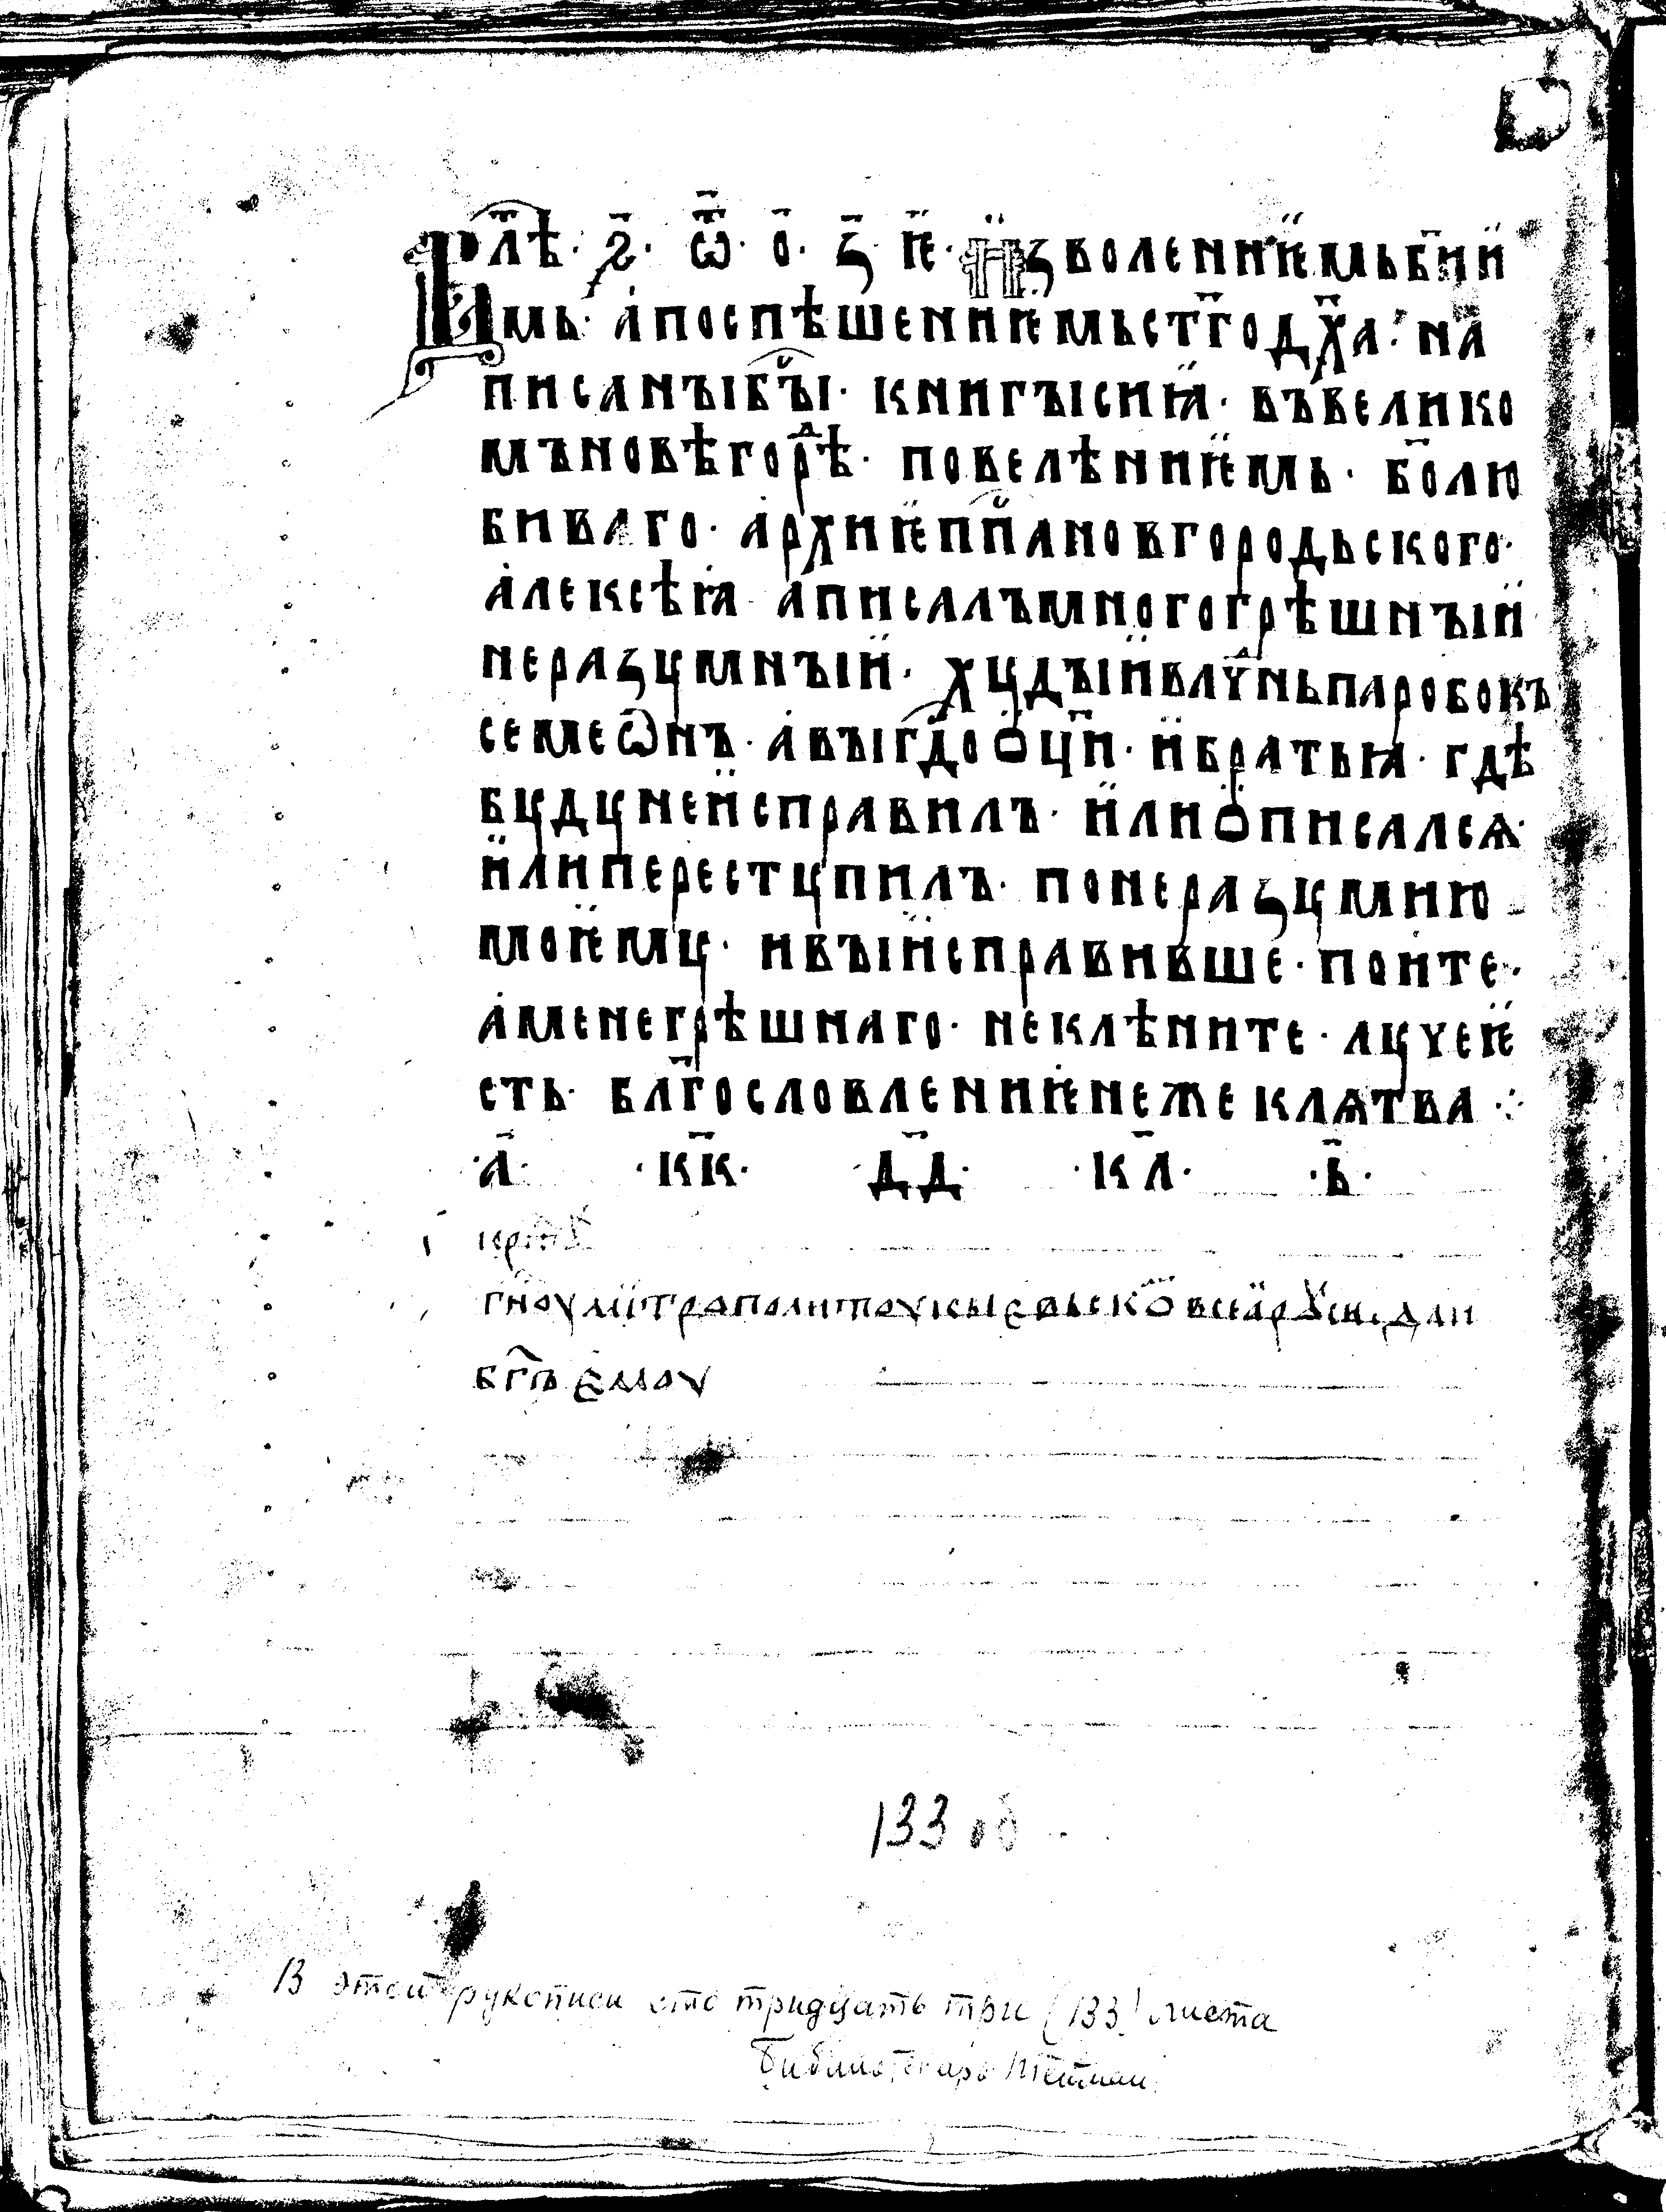 лт҃ѣ · ҂ѕ҃ · ѿ҃ · о҃ · з҃ · ѥ҃ · Изволениѥмь бж҃ии
мь · а поспѣшениѥмь ст҃го дх҃а · на
писаны бы҃ · книгы сиꙗ · въ велико
мъ новѣгорⷣѣ · повелѣниѥмь · бо҃лю
биваго · архиѥпп҃а новгородьского ·
алексѣꙗ а писалъ многогрѣшныи
неразꙋмныи · хꙋдыи влⷣчнь паробокъ
семеѡнъ · а вы гдⷭ҇о оц҃и · и братьꙗ · гдѣ
бꙋдꙋ не исправилъ · или описалсѧ ·
или перестꙋпилъ · по неразꙋмию
моѥмꙋ · и вы исправивше · поите ·
а мене грѣшнаго · не клѣните · лꙋчеѥ
сть · блг҃ословлениѥ неже клѧтва ·:·
· а҃ · · к҃к · · д҃д · · к҃л · · в҃ ·
гн҃оу митрополитоу кыевьскоⷨ всеꙗ рꙋси · даи
бг҃ъ емоу
133 об
В этой рукописи сто тридцать три (133) листа
Библиотекарь